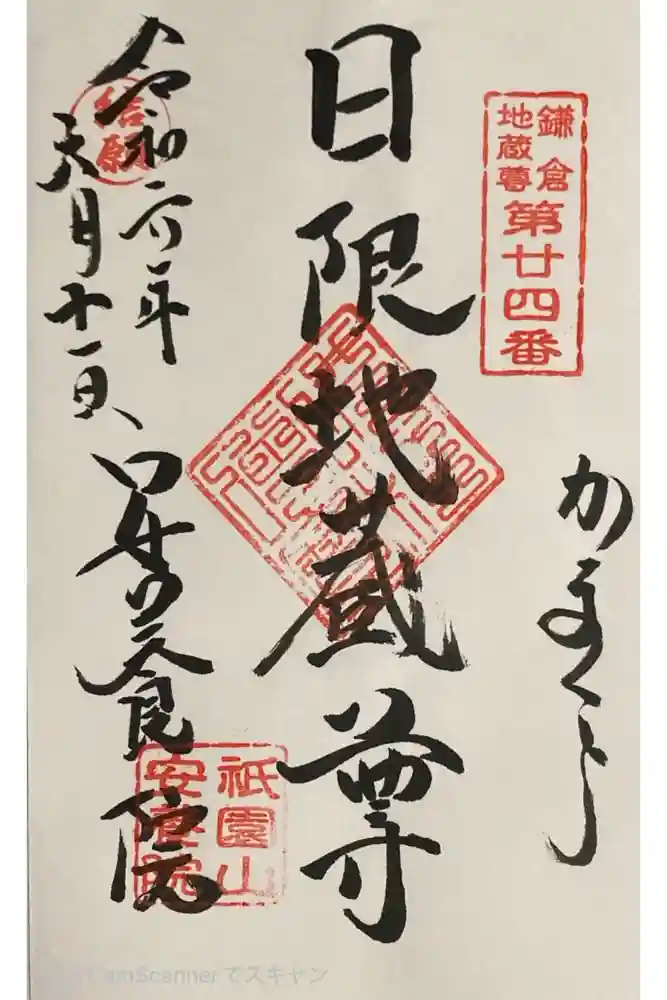 鎌倉
地蔵尊
第廿四番
かまくら
日限地蔵尊
結願
令和六年
月十一日
安養院
祇園山
安養院
CamScanner でスキャン